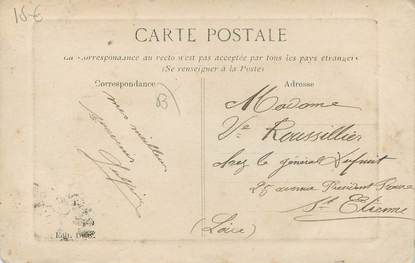 15€
CARTE POSTALE
La Correspondance au recto n'est pas acceptée par tous les pays étrangers
(Se renseigner à la Poste)
Correspondance
B
mes meilleurs
souvenirs
Adresse
Madame
Ve Roussillier
chez le général
25 avenue Président
St Etienne
(Loire)
Edit.